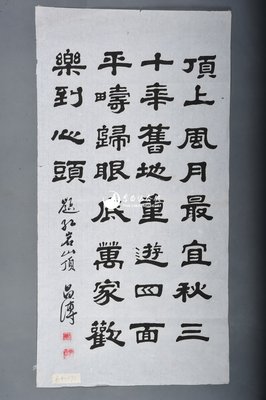 頂上風月最宜秋三
十年舊地重遊四面
平疇歸眼底萬家歡
樂到心頭
題紅岩山頂